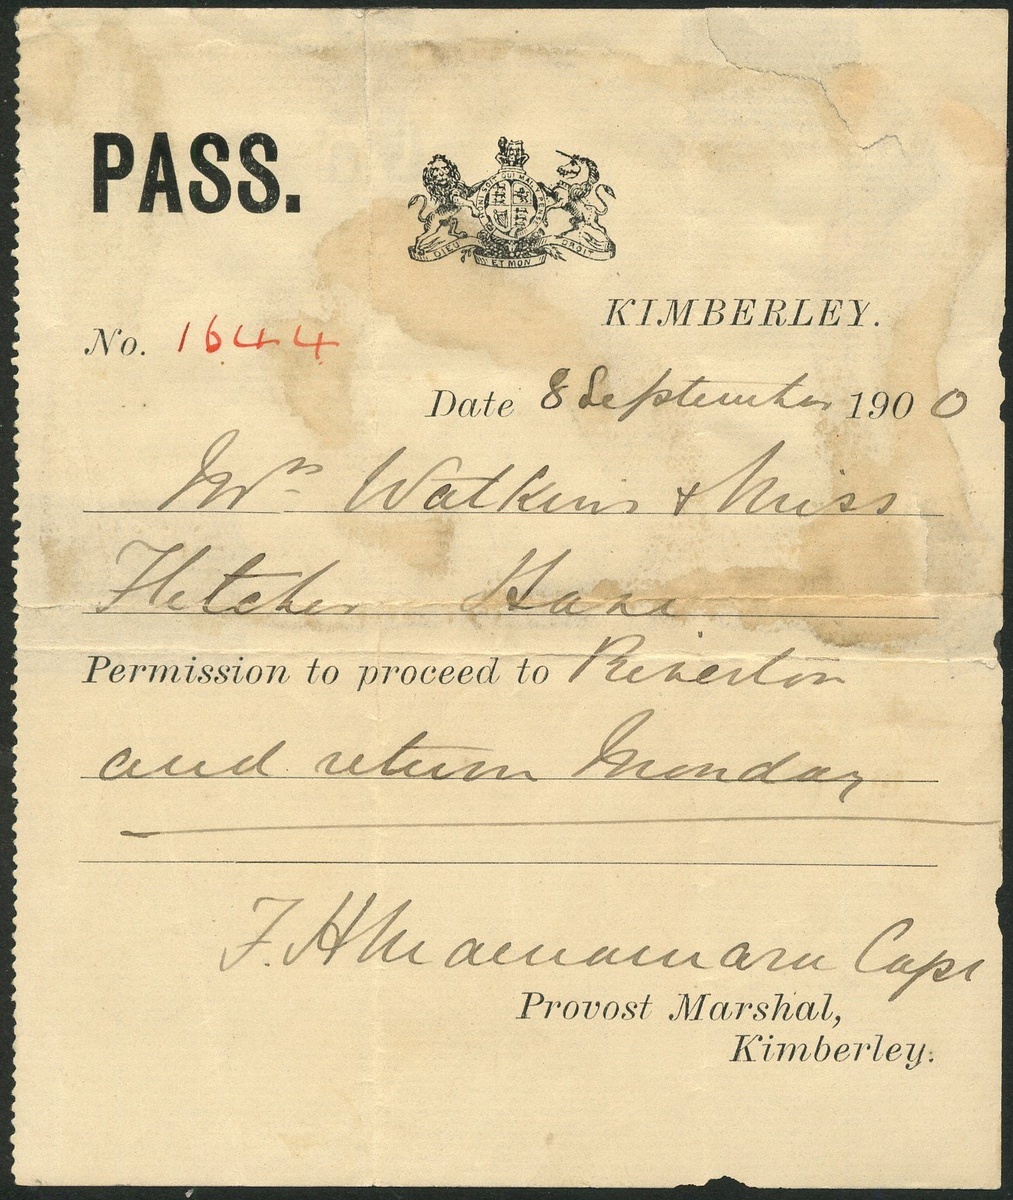 PASS.
HONI SOIT QUI MAL Y PENSE
DIEU ET MON DROIT
KIMBERLEY.
No. 1644
Date 8 September 1900
Mrs Watkins & Miss
Fletcher Have
Permission to proceed to Riverton
and return Monday
F. H Macnamara Capt
Provost Marshal,
Kimberley.